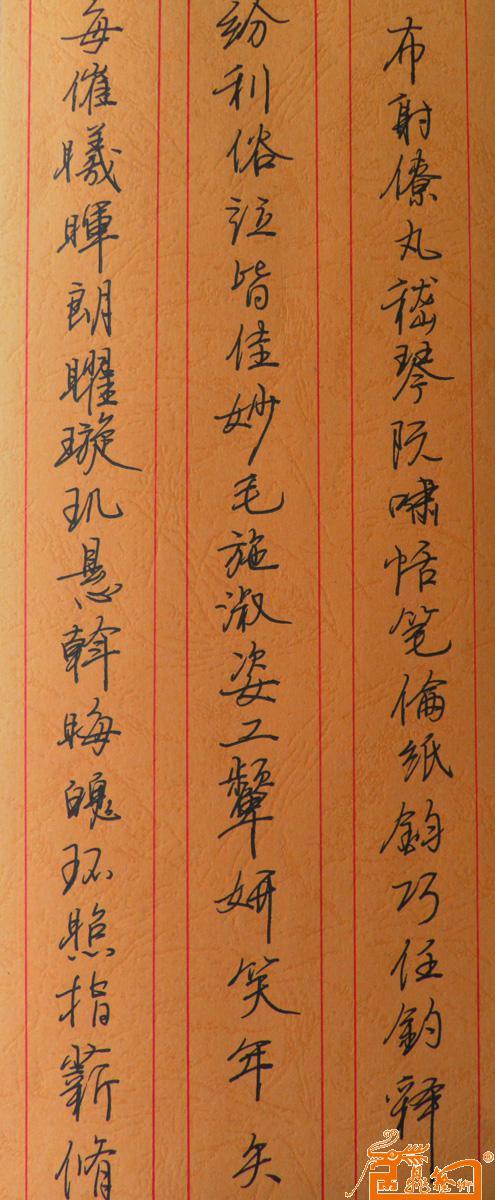 布射僚丸嵇琴阮嘯恬笔倫紙鈞巧任釣釋
紛利俗竝皆佳妙毛施淑姿工顰妍笑年矢
每催曦暉朗曜璇玑悬斡晦魄环照指薪脩